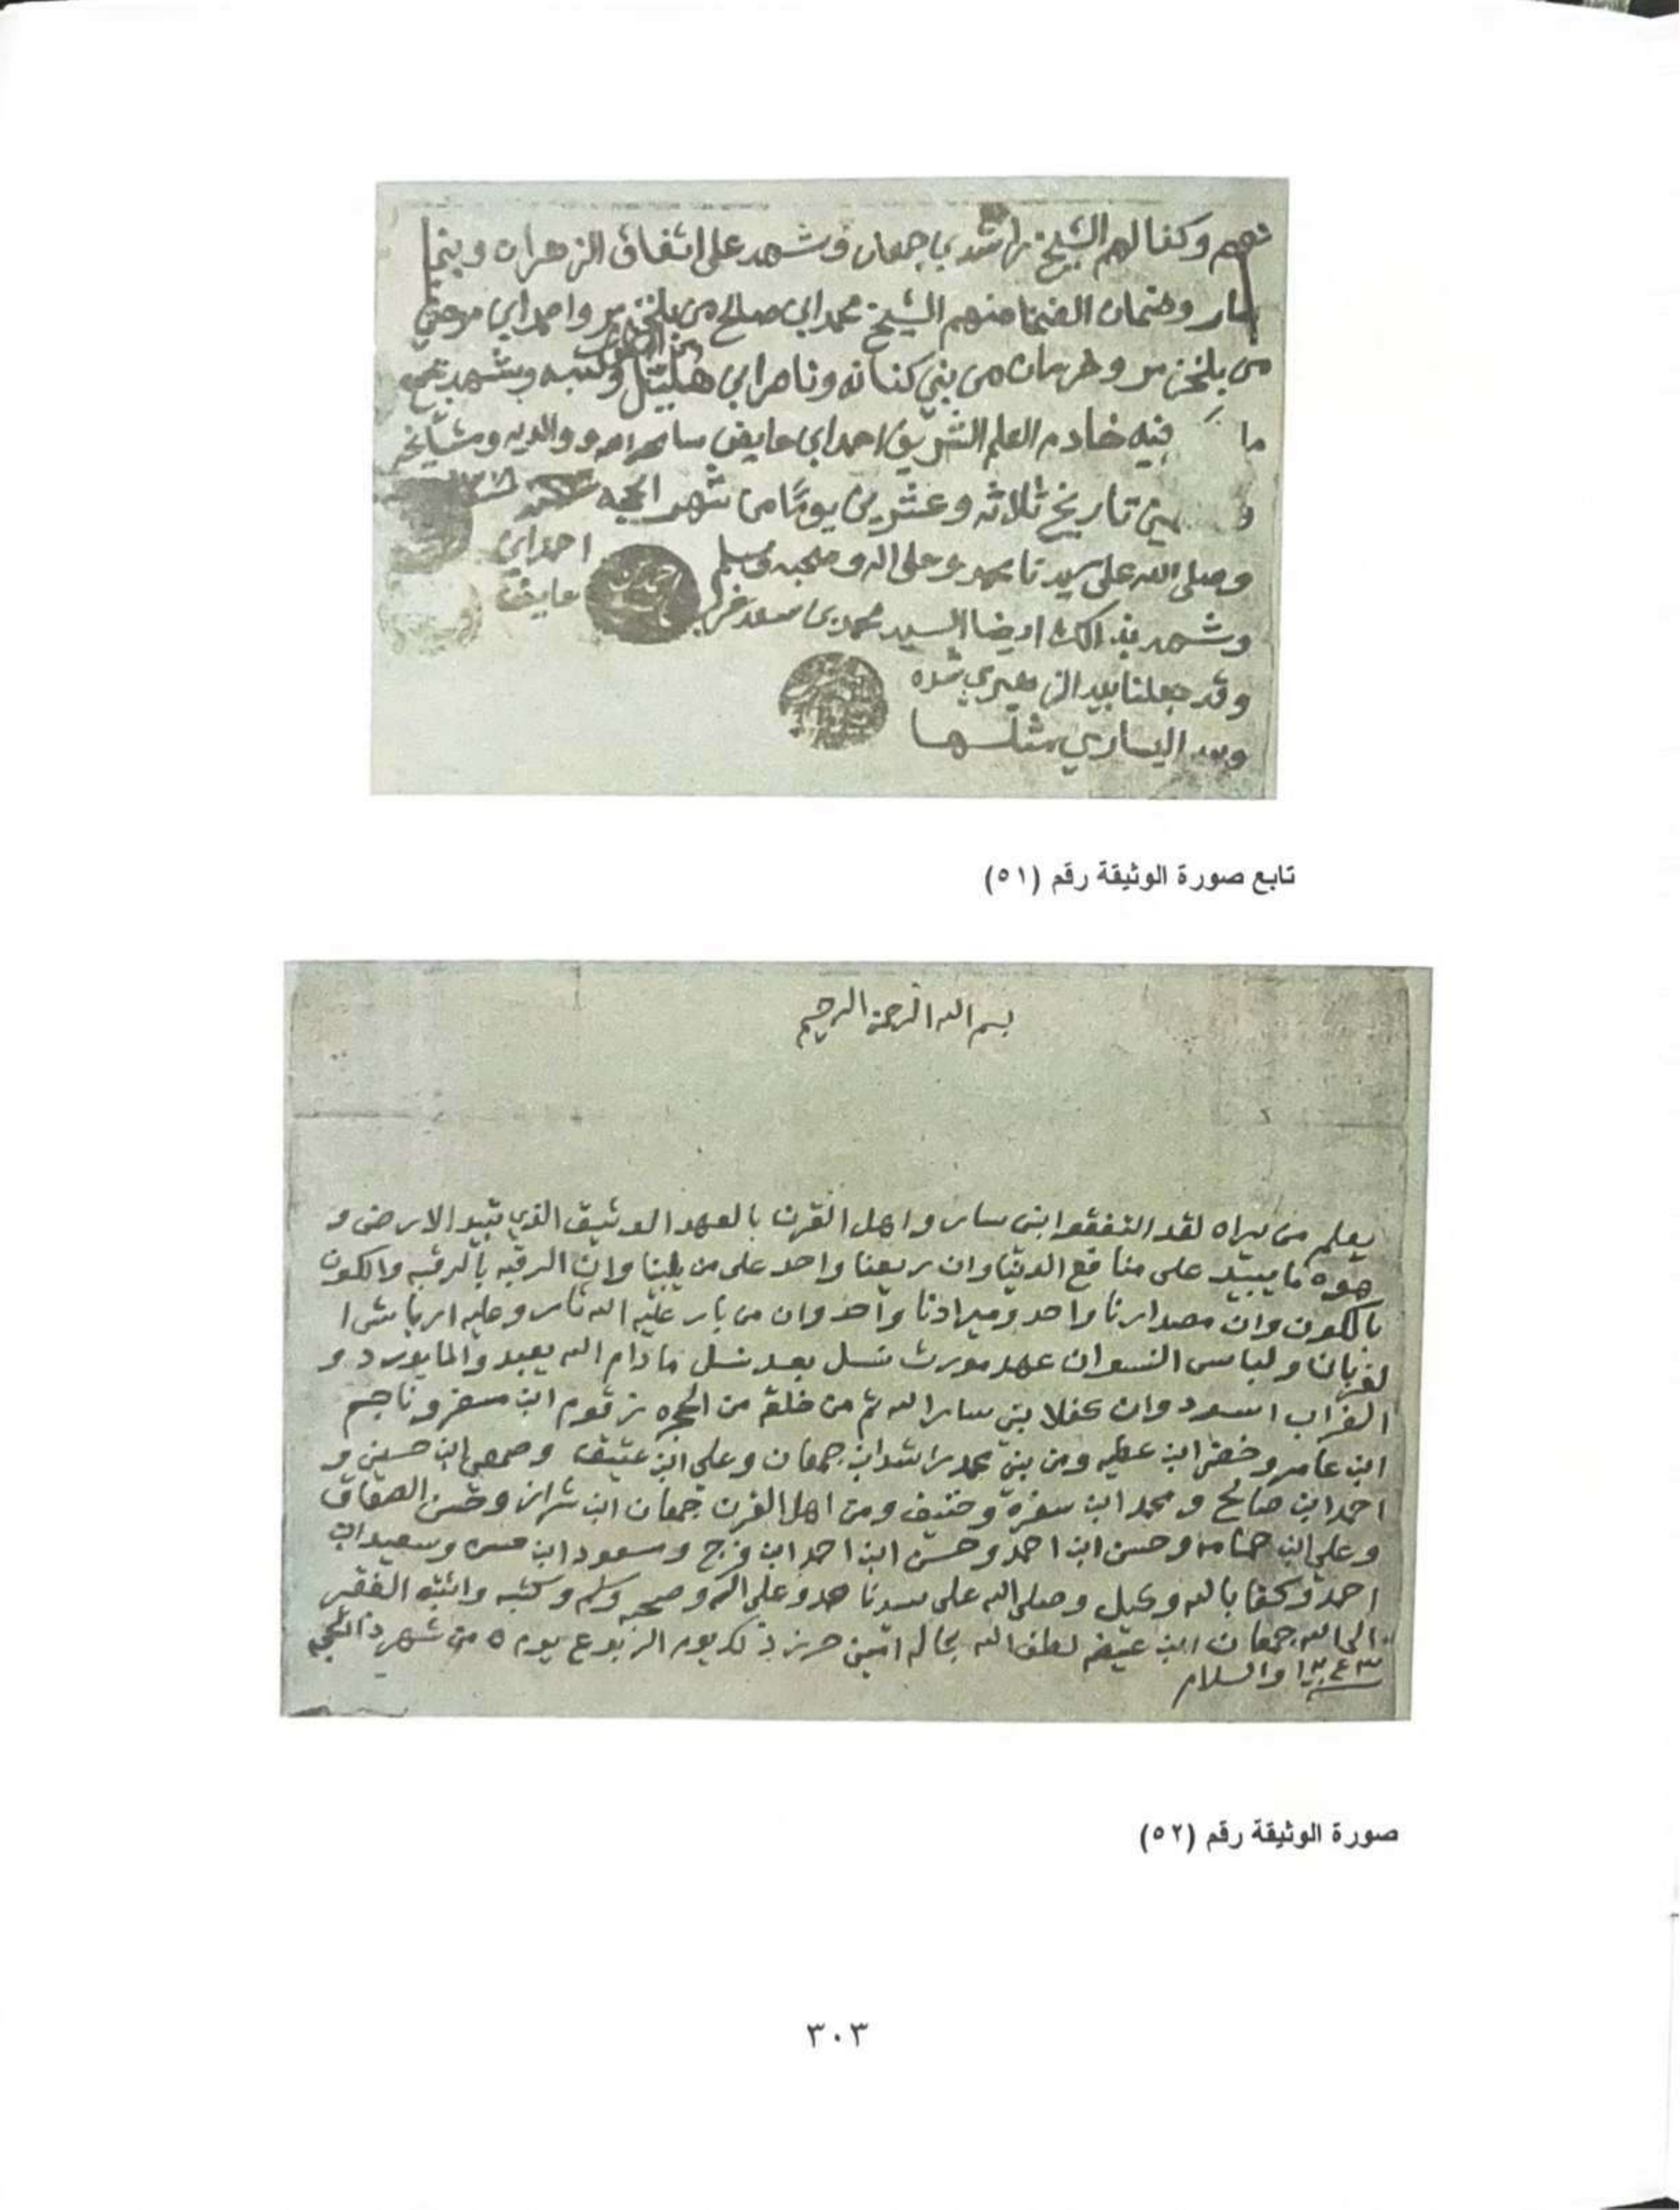 نهم وكفالهم الشيخ راشد بن جمعان وشهد على اتفاق الزهران وبني
سار وضمان الضمنا منهم الشيخ محمد ابن صالح من بلخزمر واحمد ابن
من بلخزمر من بني كنانه وناصر ابن وكتبه وشهد بجميع
ما فيه خادم العلم الشريف احمد ابن عايض والديه ومشايخه
تاريخ ثلاثه وعشرين يومًا من شهر الحجه
وصلى الله على سيدنا محمد وعلى اله وصحبه وسلم
احمد ابن
عايض
وشهد بذالك ايضا السيد محمد بن مسعد
وقد جعلنا بيد الزهيري
وبيد اليساري مثلها
تابع صورة الوثيقة رقم (٥١)
بسم الله الرحمن الرحيم
يعلم من يراه لقد التفقوا ابني سار واهل القرن بالعهد الوثيق الذي تبيد الارض و
هوه ما يبيد على منافع الدنيا وان ربعنا واحد على من يلينا وان الرقبه بالرقبه والكون
بالكون وان مصدارنا واحد وميرادنا واحد وان من بار عليه الله ثار وعليه
لغربان ولباس النسوان عهد مورث نسل بعد نسل مادام الله يعبد والما يورد و
الغراب اسود وان كفلا بني سار الله ثم من خلقه من الحجره زقوم ابن مسفر وناجم
ابن عامر وخضر ابن عطيه ومن بني محمد راشد ابن جمعان وعلي ابن عتيق ابن حسين و
احمد ابن صالح و محمد ابن سفره وحنيف ومن اهل القرن جمعان ابن شران وحسن الصعاق
وعلي ابن وحسن ابن احمد وحسن ابن احمد ابن فرج وسعود ابن وسعيد ابن
احمد وكفا بالله وكيل وصلى الله على سيدنا محمد وعلى اله وصحبه وسلم وكتبه واثبته الفقير
الى الله جمعان ابن لطف الله بحاله امين حرز ذلك يوم الربوع يوم ٥ من شهر ذالحجه
١٣٤٣ والسلام
صورة الوثيقة رقم (٥٢)
٣٠٣